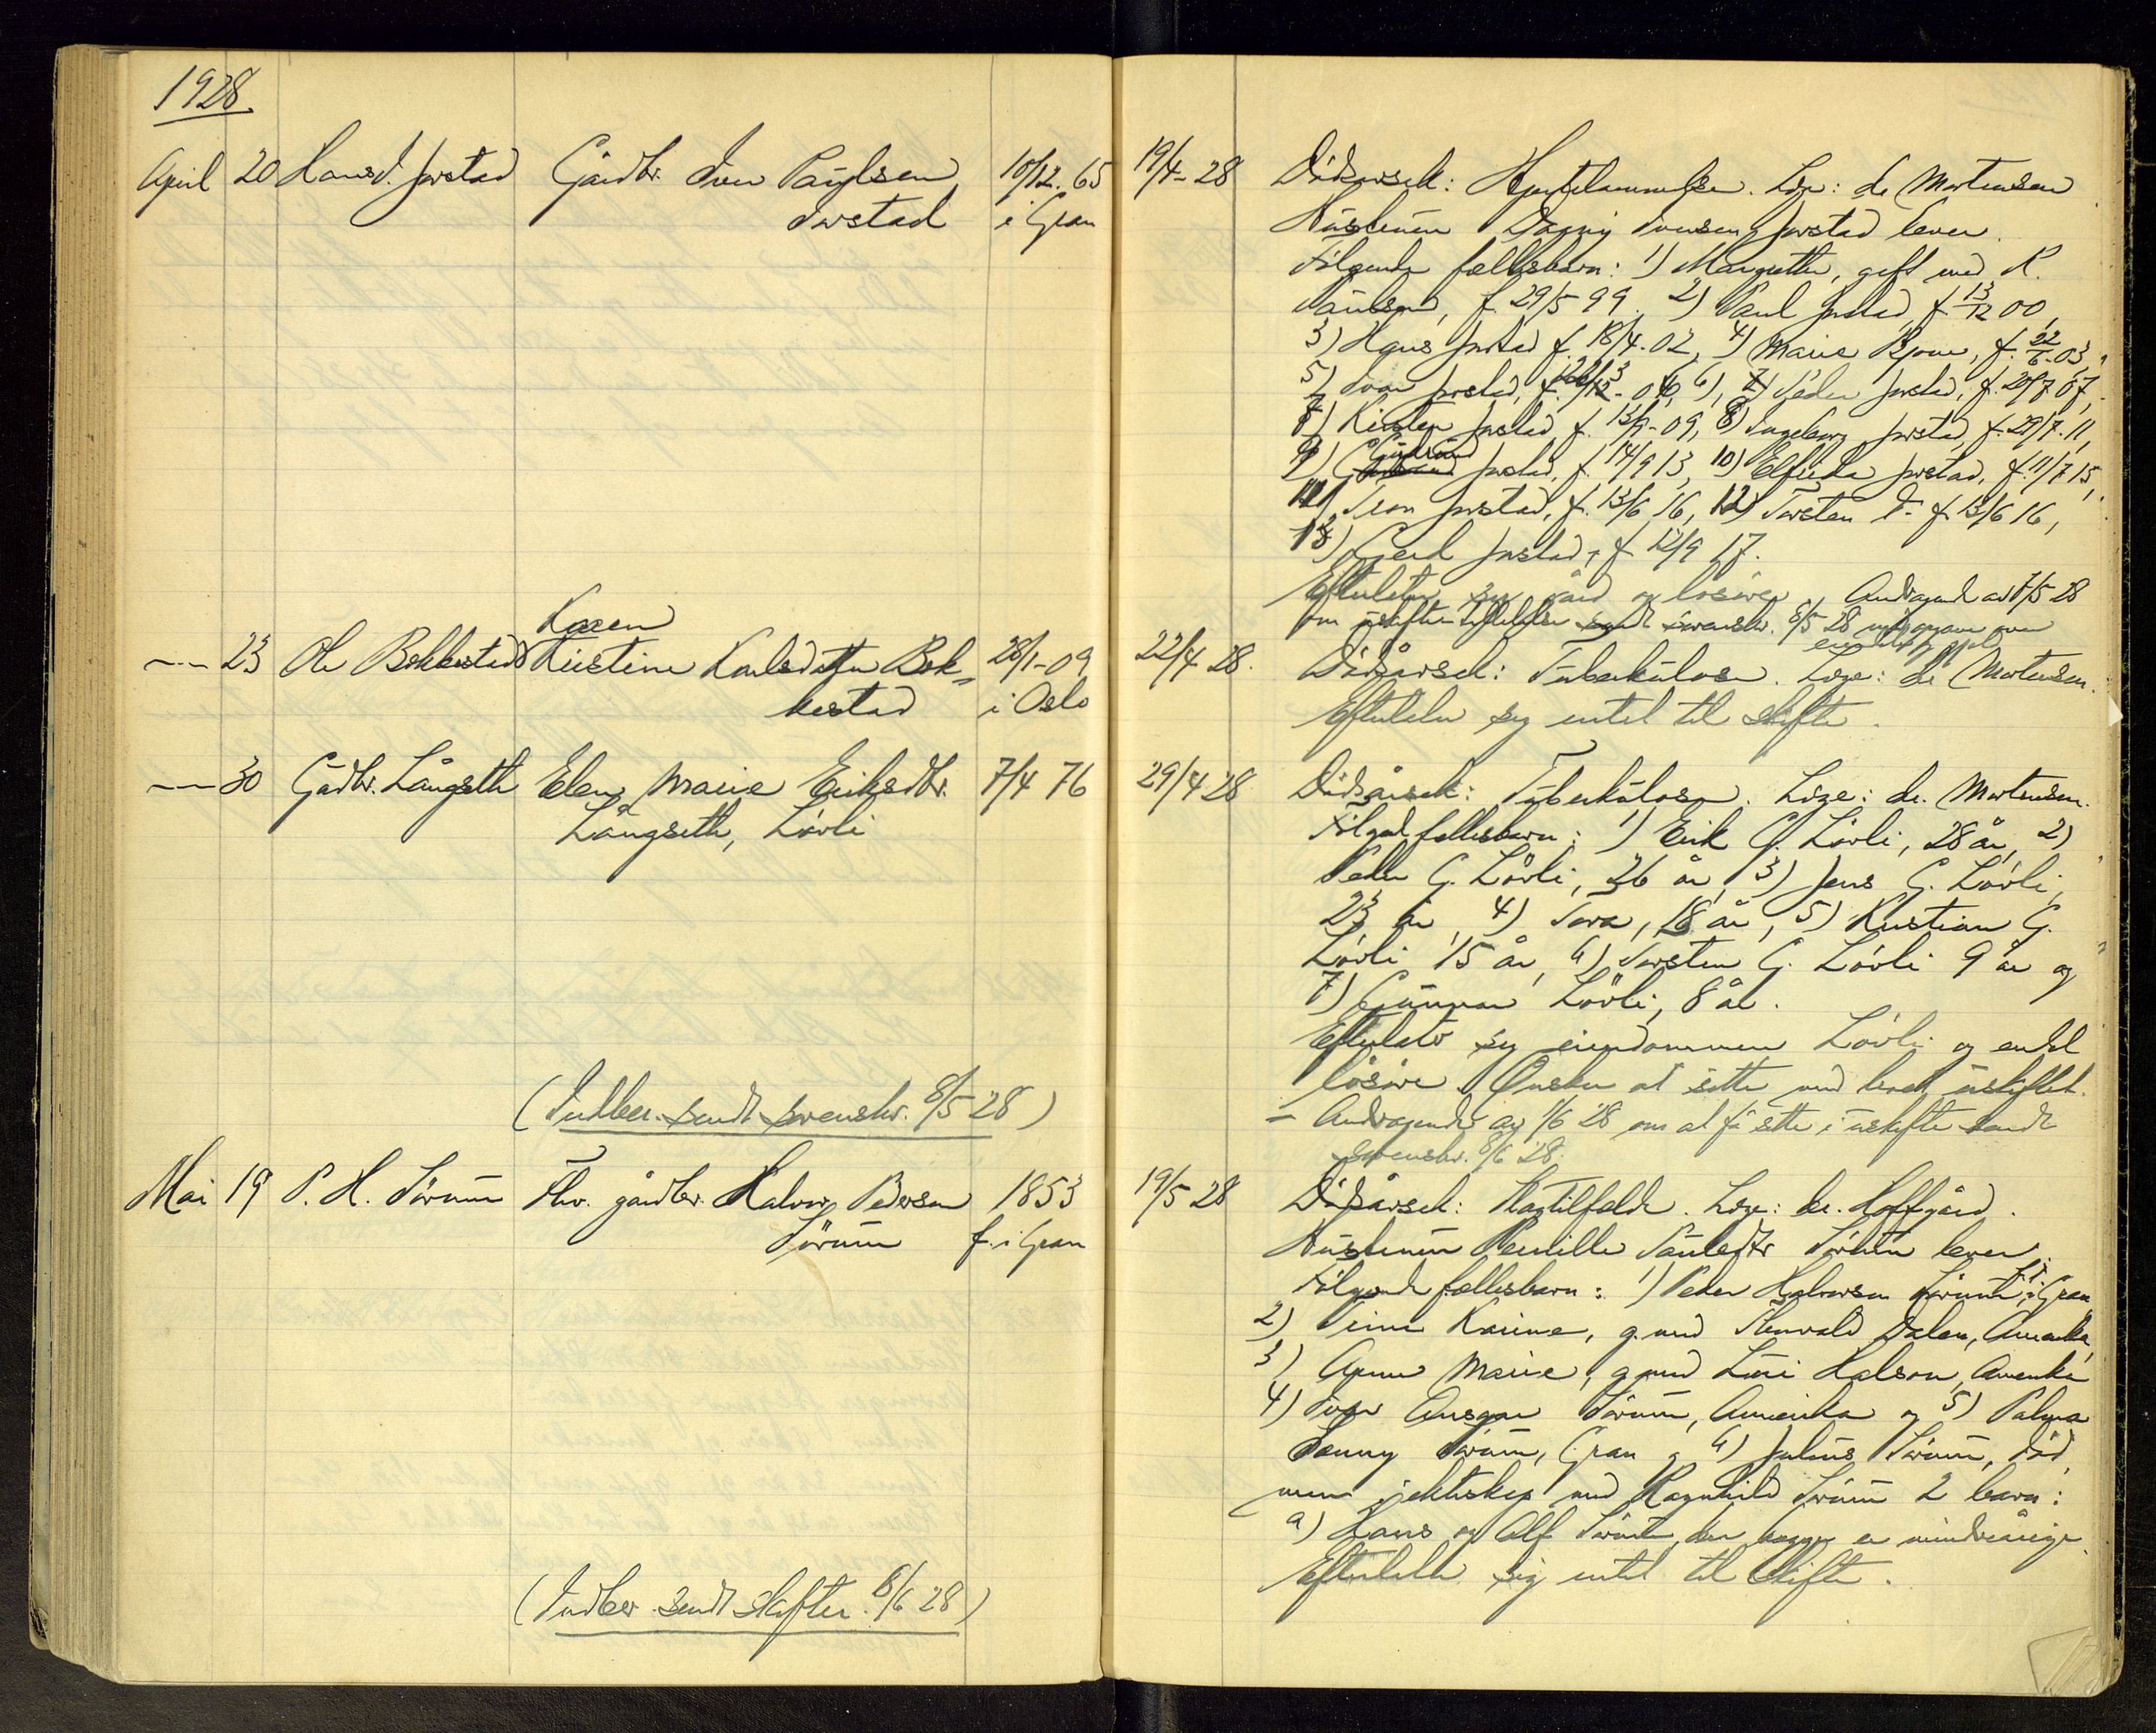 1928.
April 20 Hans J. Jorstad Gårdbr. Iver Paulsen 10/12. 65 19/4-28 Dødsårsak: Hjertelammelse. Læge: dr Mortensen
Jorstad i Gran Hustruen Dagny Iversen Jorstad lever.
Følgende fællesbarn: 1) Margrethe, gift med R.
Paulsen, f. 29/5 99. 2) Paul Jorstad f. 13/12 00,
3) Hans Jorstad f. 18/4-02, 4) Marie Bjone, f. 22/6-03,
5) Ivar Jorstad, f. 6), 7) Peder Jorstad, f. 20/7 07,
8) Kirsten Jorstad f. 13/9-09, 8) Ingeborg Jorstad, f. 29/7-11,
9) Gudrun Jorstad, f. 14/9 13, 10) Elfrida Jorstad, f. 11/7 15,
11) Iran Jorstad, f. 13/6 16, 12) Torsten do f. 13/6 16,
13) Gerd Jorstad, f. 12/9 17.
Efterlater sig gård og løsøre. Andragende av 7/5 28
om uskiftebevillelse sendt sorenskr. 8/5 28 med opgave over
Karen
-"- 23 Ole Bekkestad Kristine Karlsdatter Bek- 28/1-09 22/4 28. Dødsårsak: Tuberkulose. Læge: dr Mortensen.
kestad i Oslo Efterlater sig intet til skifte.
-"- 30 Gudbr. Långseth Elen Marie Eriksdtr. 7/4 76 29/4 28 Dødsårsak: Tuberkulose. Læge: dr. Mortensen.
Långseth, Lövli Følgende fællesbarn: 1) Erik G. Lövli, 28 år, 2)
Peder G. Lövli, 26 år, 3) Jens G. Lövli,
23 år, 4) Tora, 18 år, 5) Kristian G.
Lövli 15 år, 6) Torsten G. Lövli 9 år og
7) Gunnar Lövli, 8 år.
Efterlater sig eiendommen Lövli og endel
løsøre. Ønsker at sitte med boet uskiftet.
(Indber. sendt sorenskr. 8/5 28) - Andragende av 1/6 28 om at få sitte i uskifte sendt
sorenskr. 8/6 28.
Mai 19 P. H. Sörum Fhv. gårdbr. Halvor Pedersen 1853 19/5 28 Dødsårsak: Slagtilfælde. Læge: dr. Hoffgård.
Sörum f. i Gran Hustruen Pernille Paulsdtr Sörum lever.
Følgende fællesbarn: 1) Peder Halvorsen Sörum, i Gran
2) Karine, g. med Thorvald Dalen, Amerika,
3) Anne Marie, g. med Halson, Amerika
4) Iver Ansgar Sörum, Amerika og 5) Palma
Jenny Sörum, Gran og 6) Julius Sörum, död,
men i ekteskap med Ragnhild Sörum 2 barn:
a) Hans og Alf Sörum, der begge er mindreårige.
Efterlater sig intet til skifte.
(Indber. sendt skifter. 8/6 28)